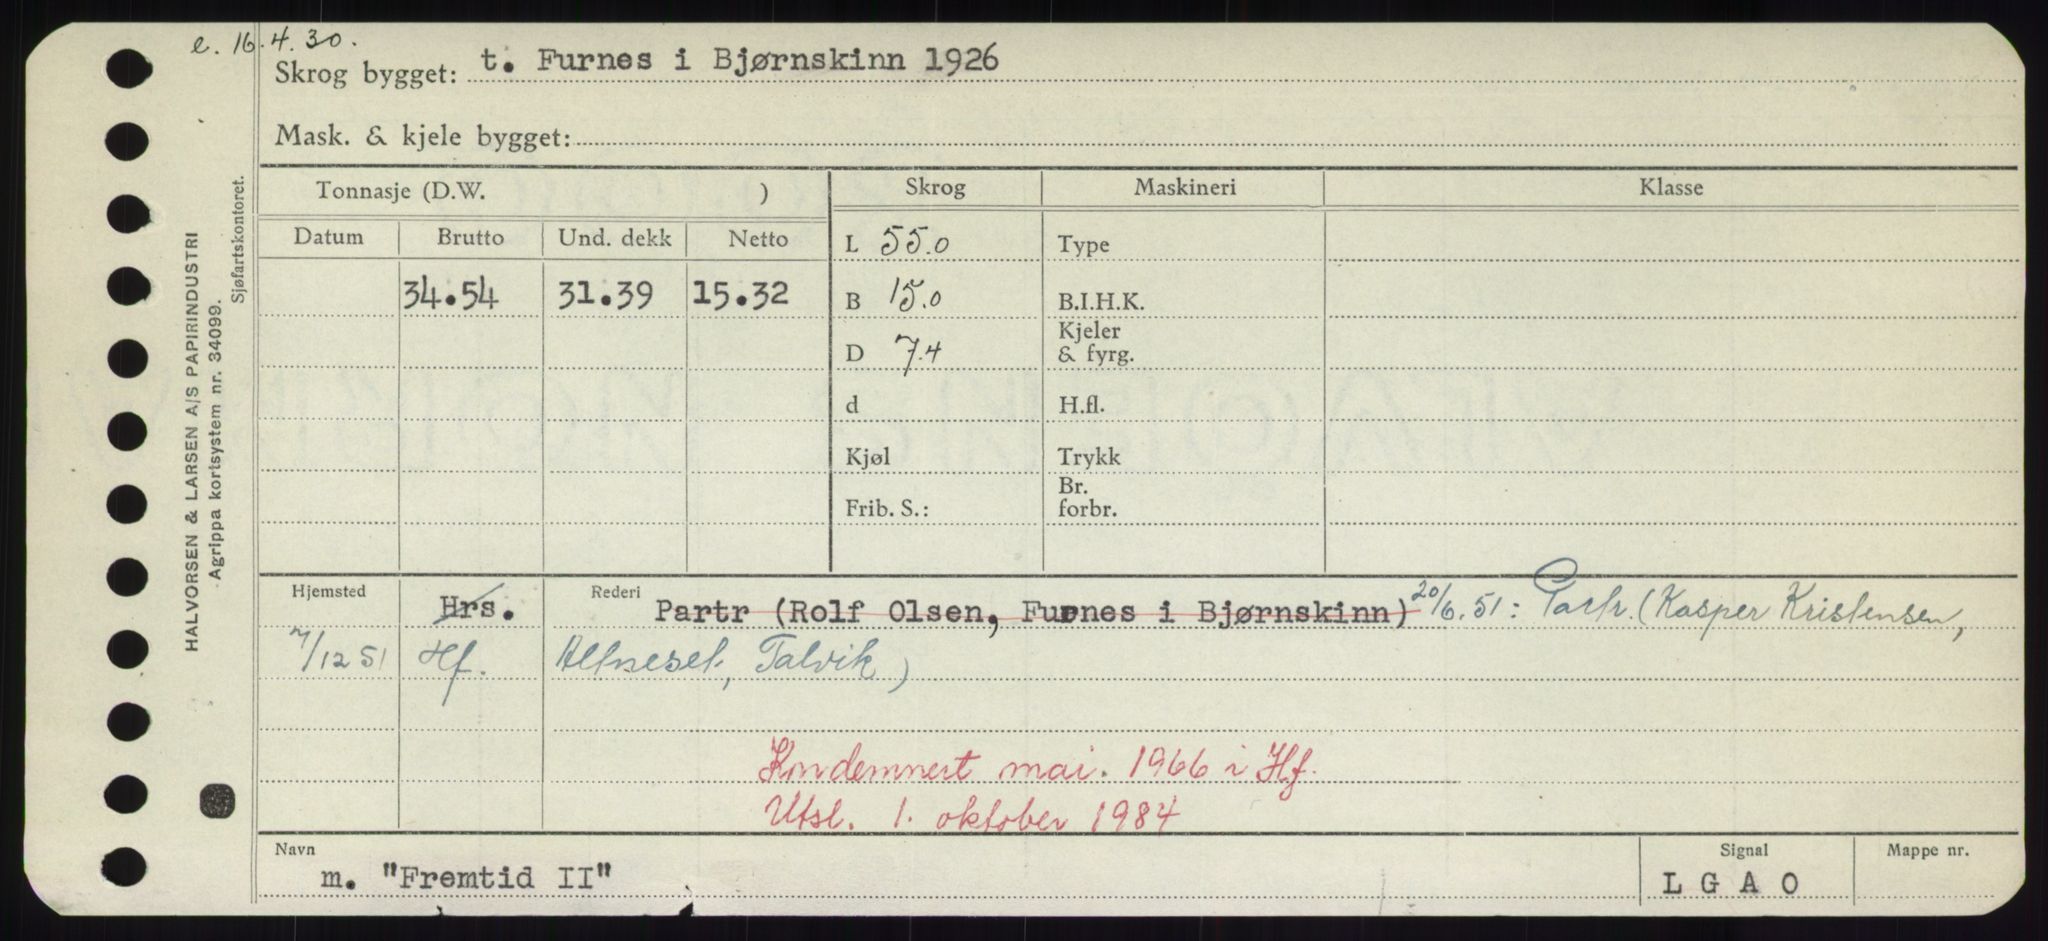 e. 16.4.30.
Skrog bygget: t. Furnes i Bjørnskinn 1926
Mask. & kjele bygget:
Tonnasje (D.W. ) Skrog Maskineri Klasse
Datum Brutto Und. dekk Netto
L 55.0 Type
34.54 31.39 15.32 B 15.0 B.I.H.K.
D 7.4 Kjeler & fyrg.
d H.fl.
Kjøl Trykk
Frib. S.: Br. forbr.
Hjemsted Hrs. Rederi Partr (Rolf Olsen, Furnes i Bjørnskinn) 20/6.51: Partr. (Kasper Kristensen,
7/12 51 Hf. Altneset, Talvik)
Kondemnert mai. 1966 i Hf.
Utsl. 1. oktober 1984
Navn Signal Mappe nr.
m. "Fremtid II" L G A O
HALVORSEN & LARSEN A/S PAPIRINDUSTRI
Agrippa kortsystem nr. 34099.
Sjøfartskontoret.